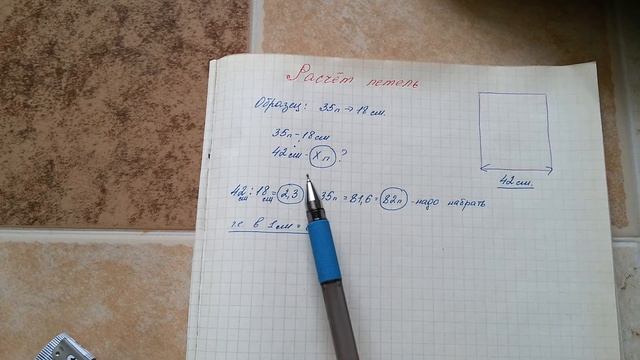 Расчёт петель
Образец: 35п → 18 см.
35п - 18 см
42 см - Xп ?
42 см : 18 см = 2,3 35п = 81,6 = 82п - надо набрать
т.е в 1 см =
42 см.